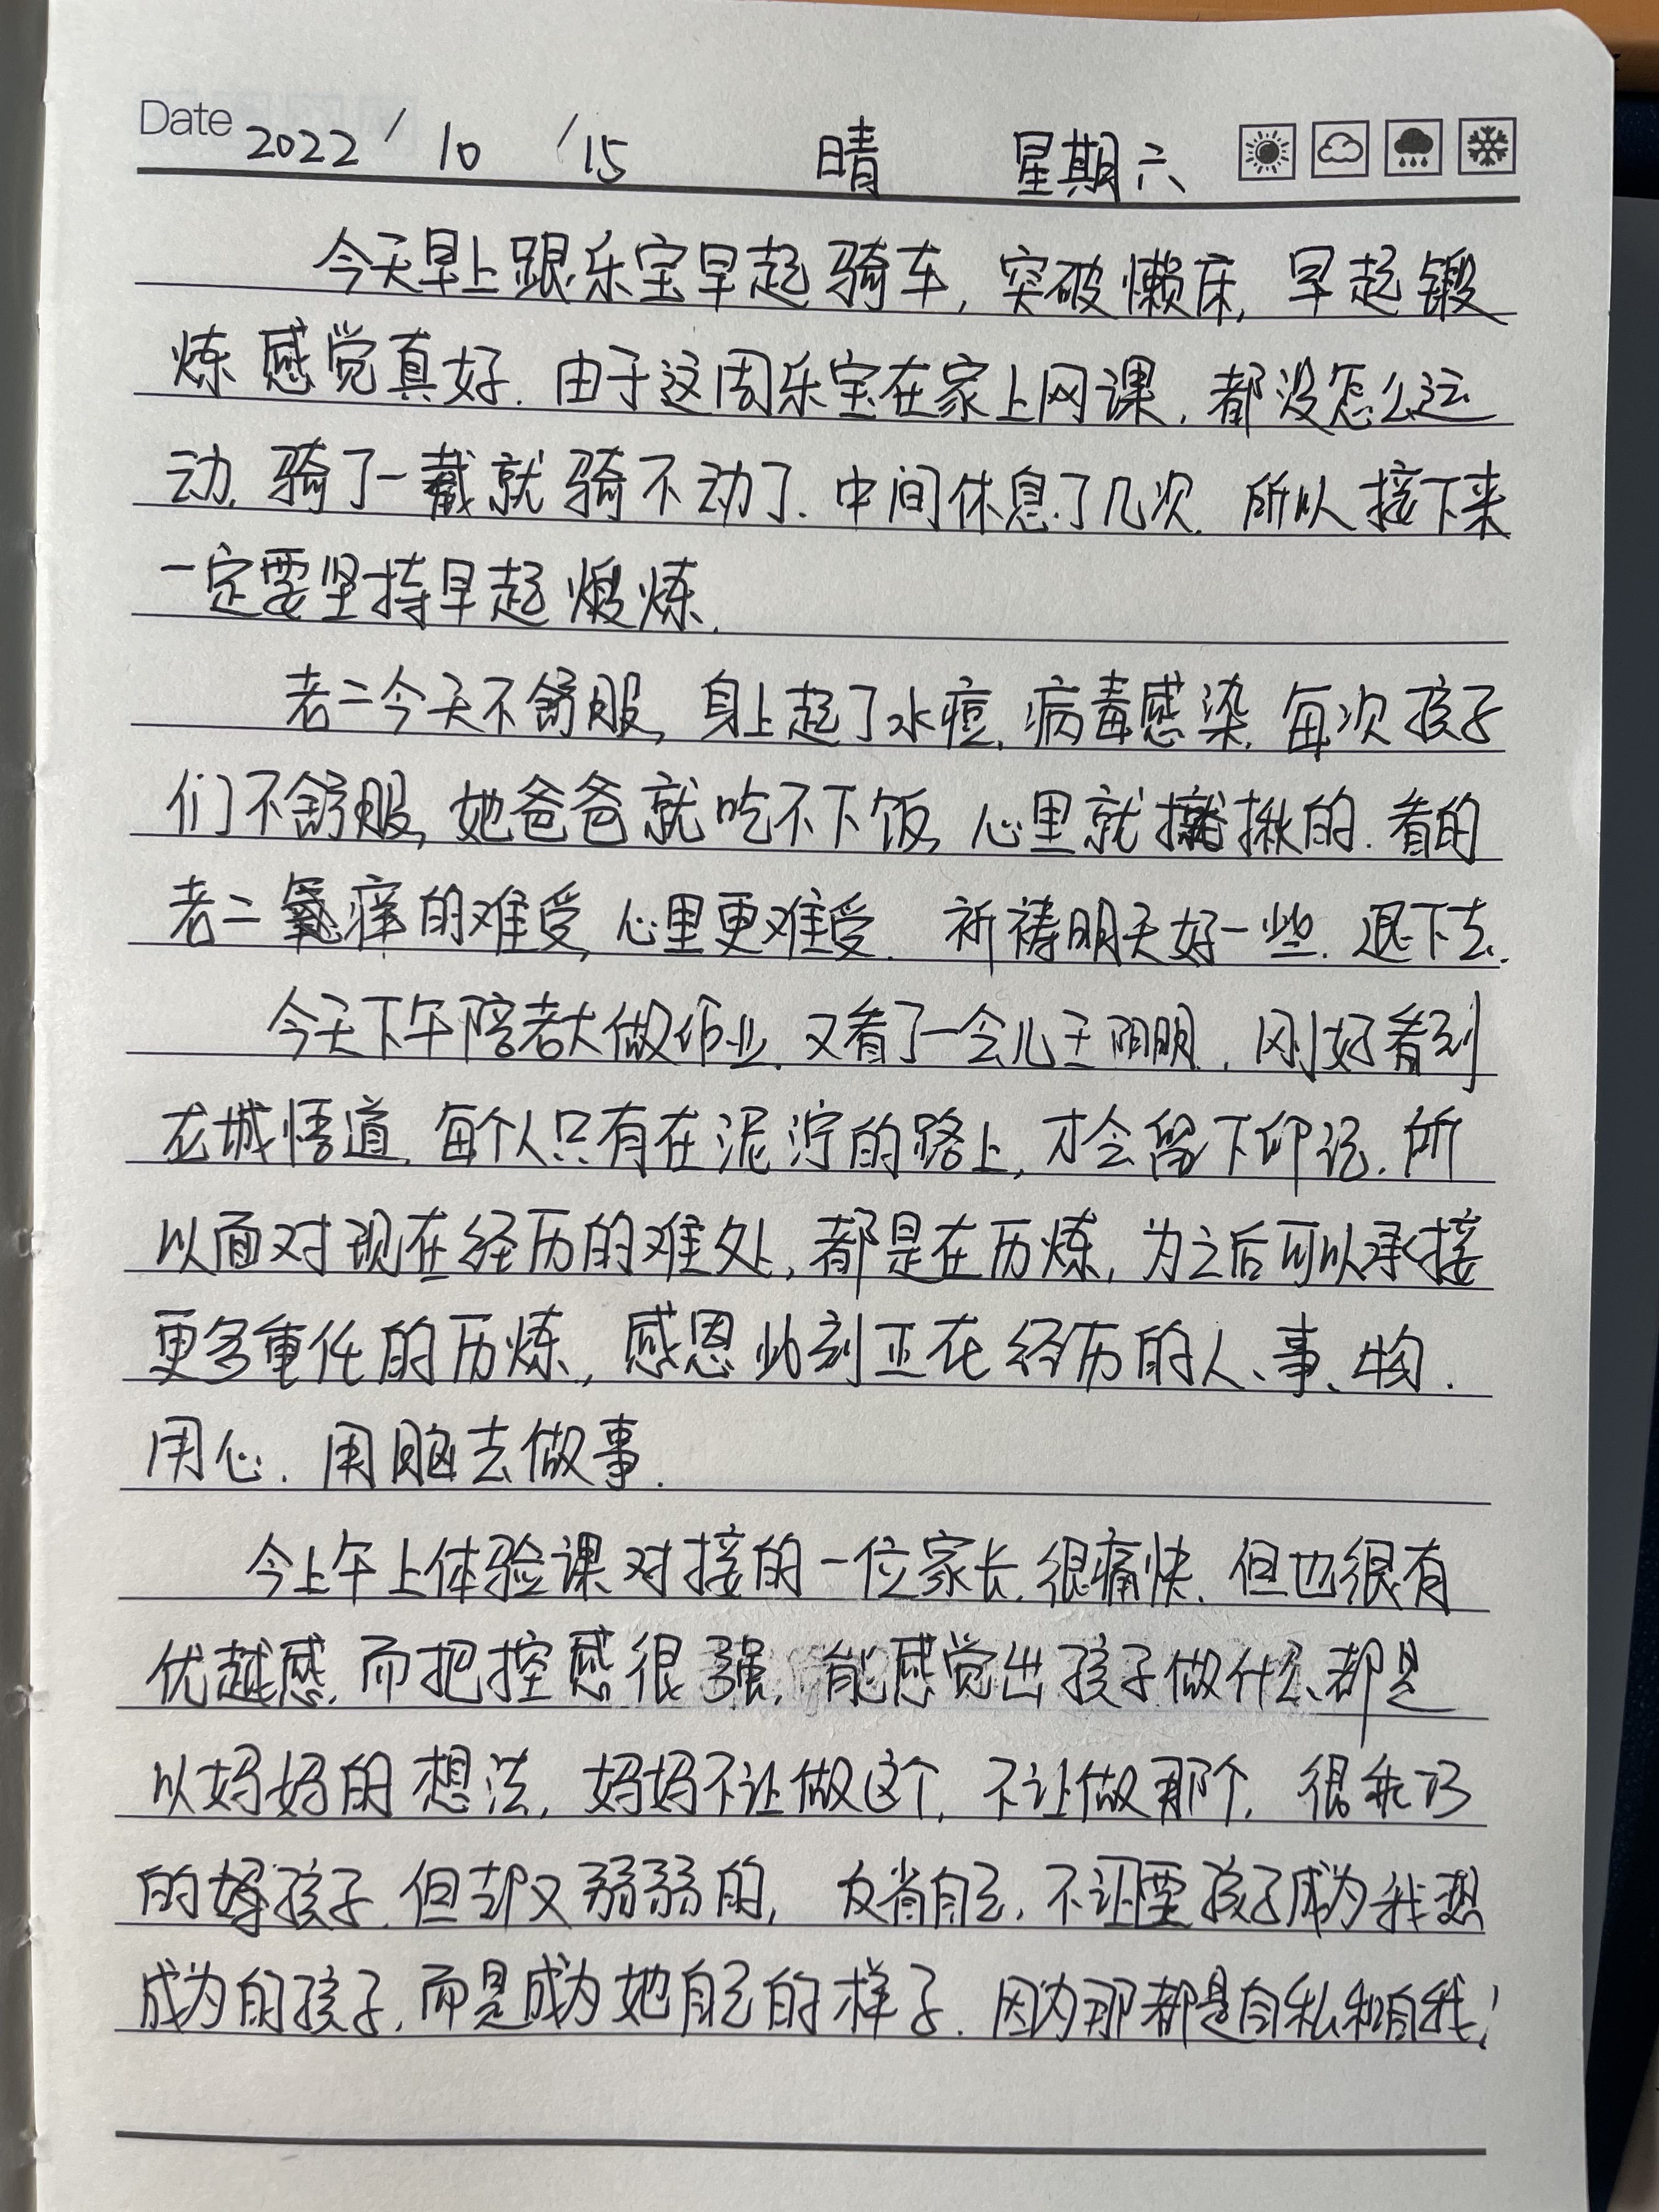 Date 2022 / 10 / 15 晴 星期六
今天早上跟乐宝早起骑车,突破懒床,早起锻
炼感觉真好.由于这周乐宝在家上网课,都没怎么运
动.骑了一截就骑不动了.中间休息了几次.所以接下来
一定要坚持早起煅炼.
老二今天不舒服,身上起了水痘.病毒感染.每次孩子
们不舒服,她爸爸就吃不下饭,心里就揪的.看的
老二痒的难受,心里更难受.祈祷明天好一些.退下去.
今天下午陪老大做作业.又看了一会儿王阳明.刚好看到
龙城悟道.每个人只有在泥泞的路上,才会留下印记.所
以面对现在经历的难处,都是在历炼,为之后可以承接
更多重任的历炼,感恩此刻正在经历的人、事、物.
用心.用脑去做事.
今上午上体验课对接的一位家长.很痛快.但也很有
优越感.而把控感很强.能感觉出孩子做什么都是
以妈妈的想法,妈妈不让做这个,不让做那个,很乖巧
的孩子.但却又弱弱的,反省自己.不让孩子成为我想
成为的孩子.而是成为她自己的样子.因为那都是自私和自我!